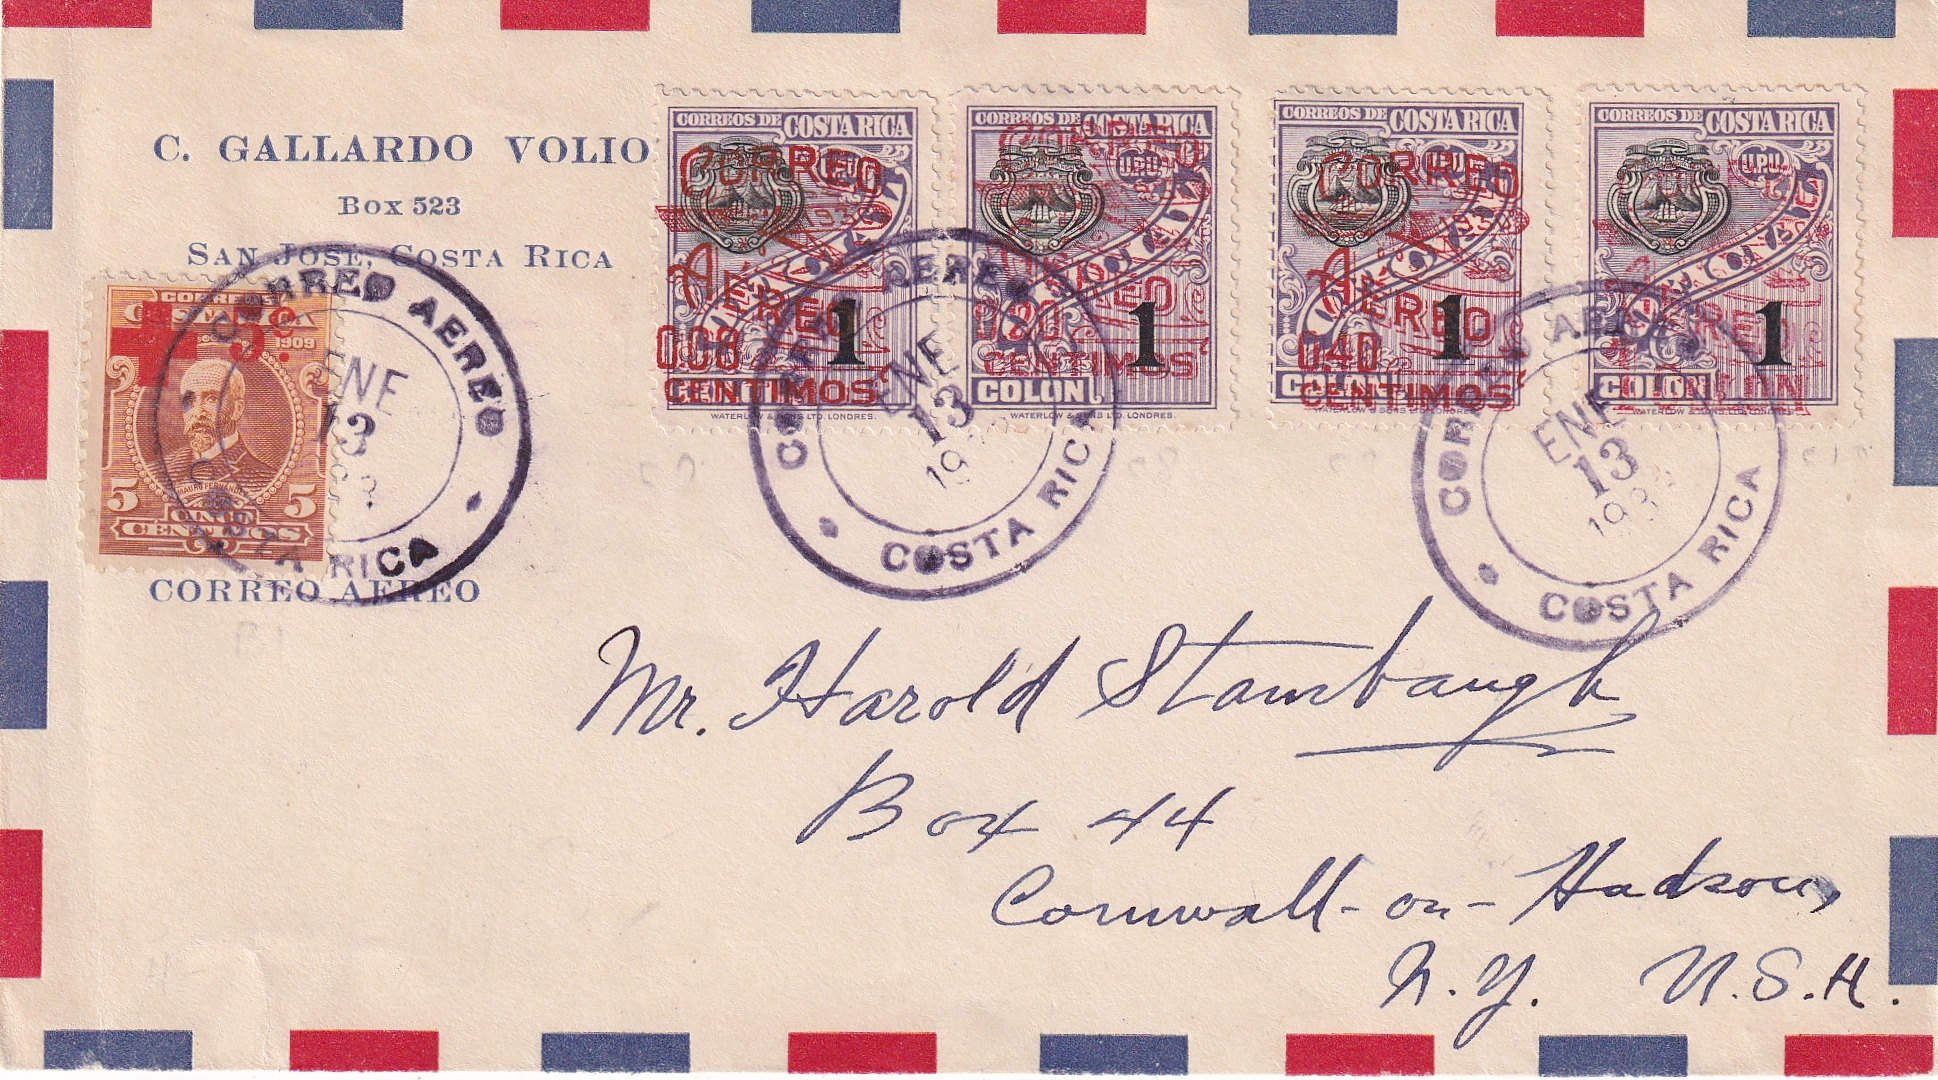 C. GALLARDO VOLIO
Box 523
SAN JOSÉ, COSTA RICA
CORREOS DE COSTA RICA
U.P.U.
CORREO
1930
AEREO
0.08
CENTIMOS
1
WATERLOW & SONS LTD. LONDRES.
CORREOS DE COSTA RICA
U.P.U.
CORREO
AEREO
CENTIMOS
1
COLON
WATERLOW & SONS LTD. LONDRES.
CORREOS DE COSTA RICA
U.P.U.
CORREO
1930
AEREO
0.40
CENTIMOS
1
WATERLOW & SONS LTD. LONDRES
CORREOS DE COSTA RICA
U.P.U.
AEREO
1
COLON
WATERLOW & SONS LTD. LONDRES
CORREOS
1909
MAURO FERNANDEZ
5 5
CINCO
CENTIMOS
CORREO AEREO
ENE
13
COSTA RICA
CORREO AEREO
ENE
13
COSTA RICA
CORREO AEREO
ENE
13
COSTA RICA
CORREO AEREO
Mr. Harold Stambaugh
Box 44
Cornwall-on-Hudson,
N.Y. U.S.A.